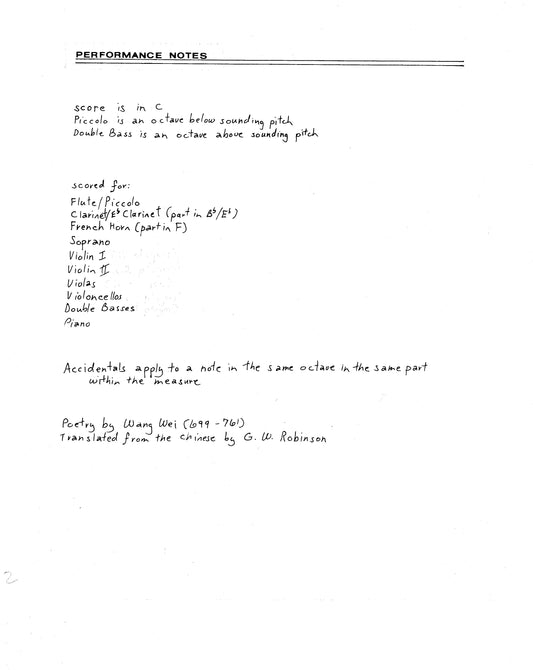 PERFORMANCE NOTES
score is in C
Piccolo is an octave below sounding pitch
Double Bass is an octave above sounding pitch
scored for:
Flute/Piccolo
Clarinet/E♭ Clarinet (part in B♭/E♭)
French Horn (part in F)
Soprano
Violin I
Violin II
Violas
Violoncellos
Double Basses
Piano
Accidentals apply to a note in the same octave in the same part
within the measure
Poetry by Wang Wei (699-761)
Translated from the Chinese by G. W. Robinson
2